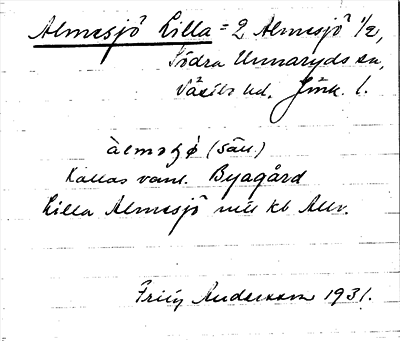 Almesjö Lilla = 2 Almesjö 1/2,
Södra Unnaryds sn,
Västbo hd. Jönk. l.
àlməʂø (säll.)
Kallas vanl. Byagård
Lilla Almesjö
Frity Andersson 1931.